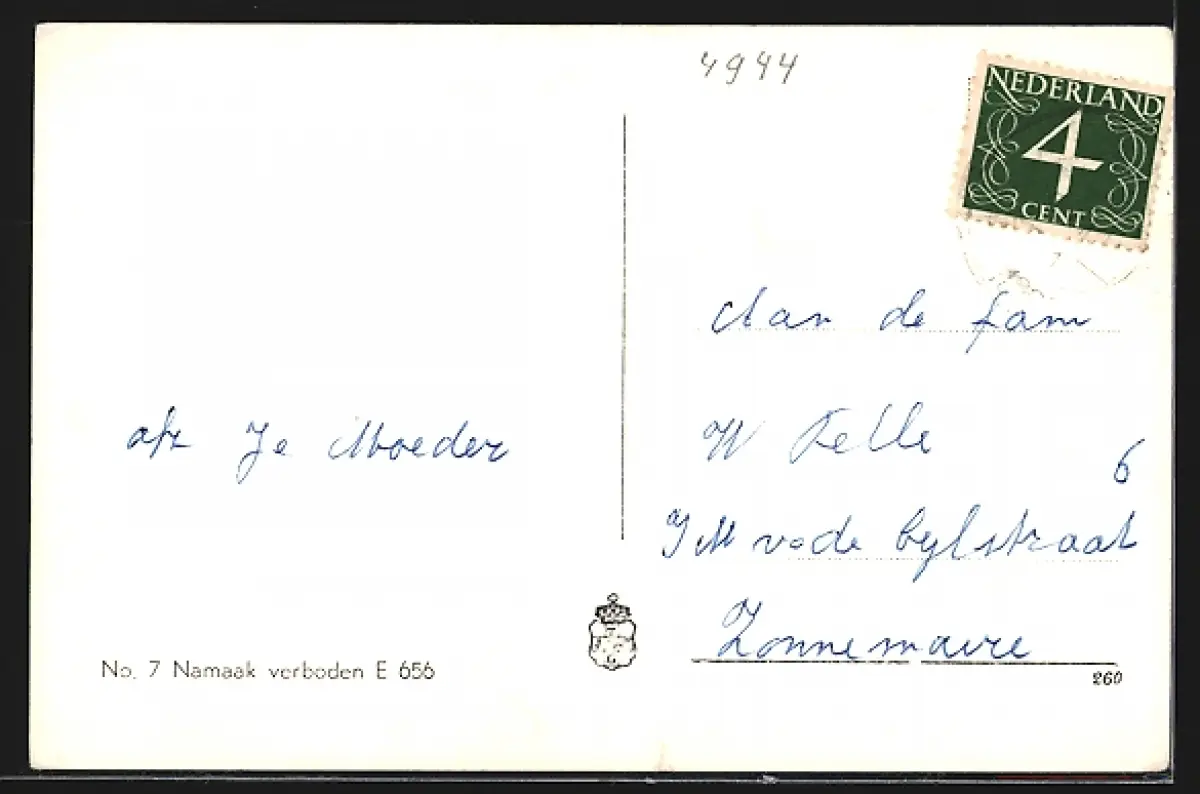 4944
NEDERLAND
4
CENT
Aan de fam
afz Je Moeder
W Felle
6
J M v de Bylstraat
Zonnemaire
No. 7 Namaak verboden E 656
260